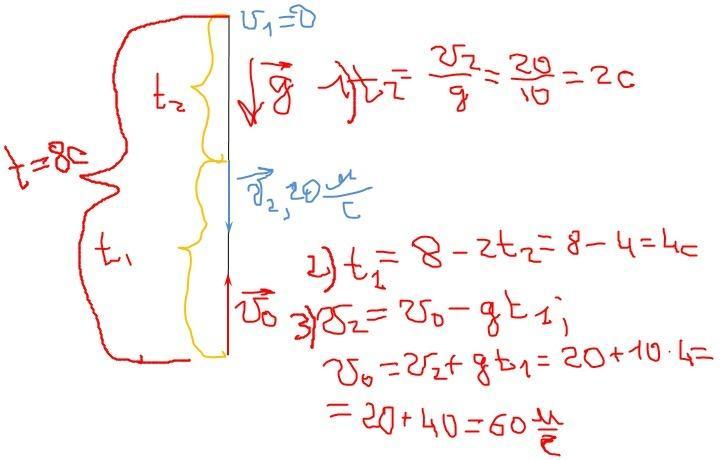 v₁=0
t₂
g⃗
1) t₂ = v₂/g = 20/10 = 2c
t=8c
v⃗₂, 20 м/с
t₁
2) t₁ = 8 − 2t₂ = 8 − 4 = 4c
v⃗₀
3) v₂ = v₀ − gt₁;
v₀ = v₂ + gt₁ = 20 + 10·4 =
= 20 + 40 = 60 м/с